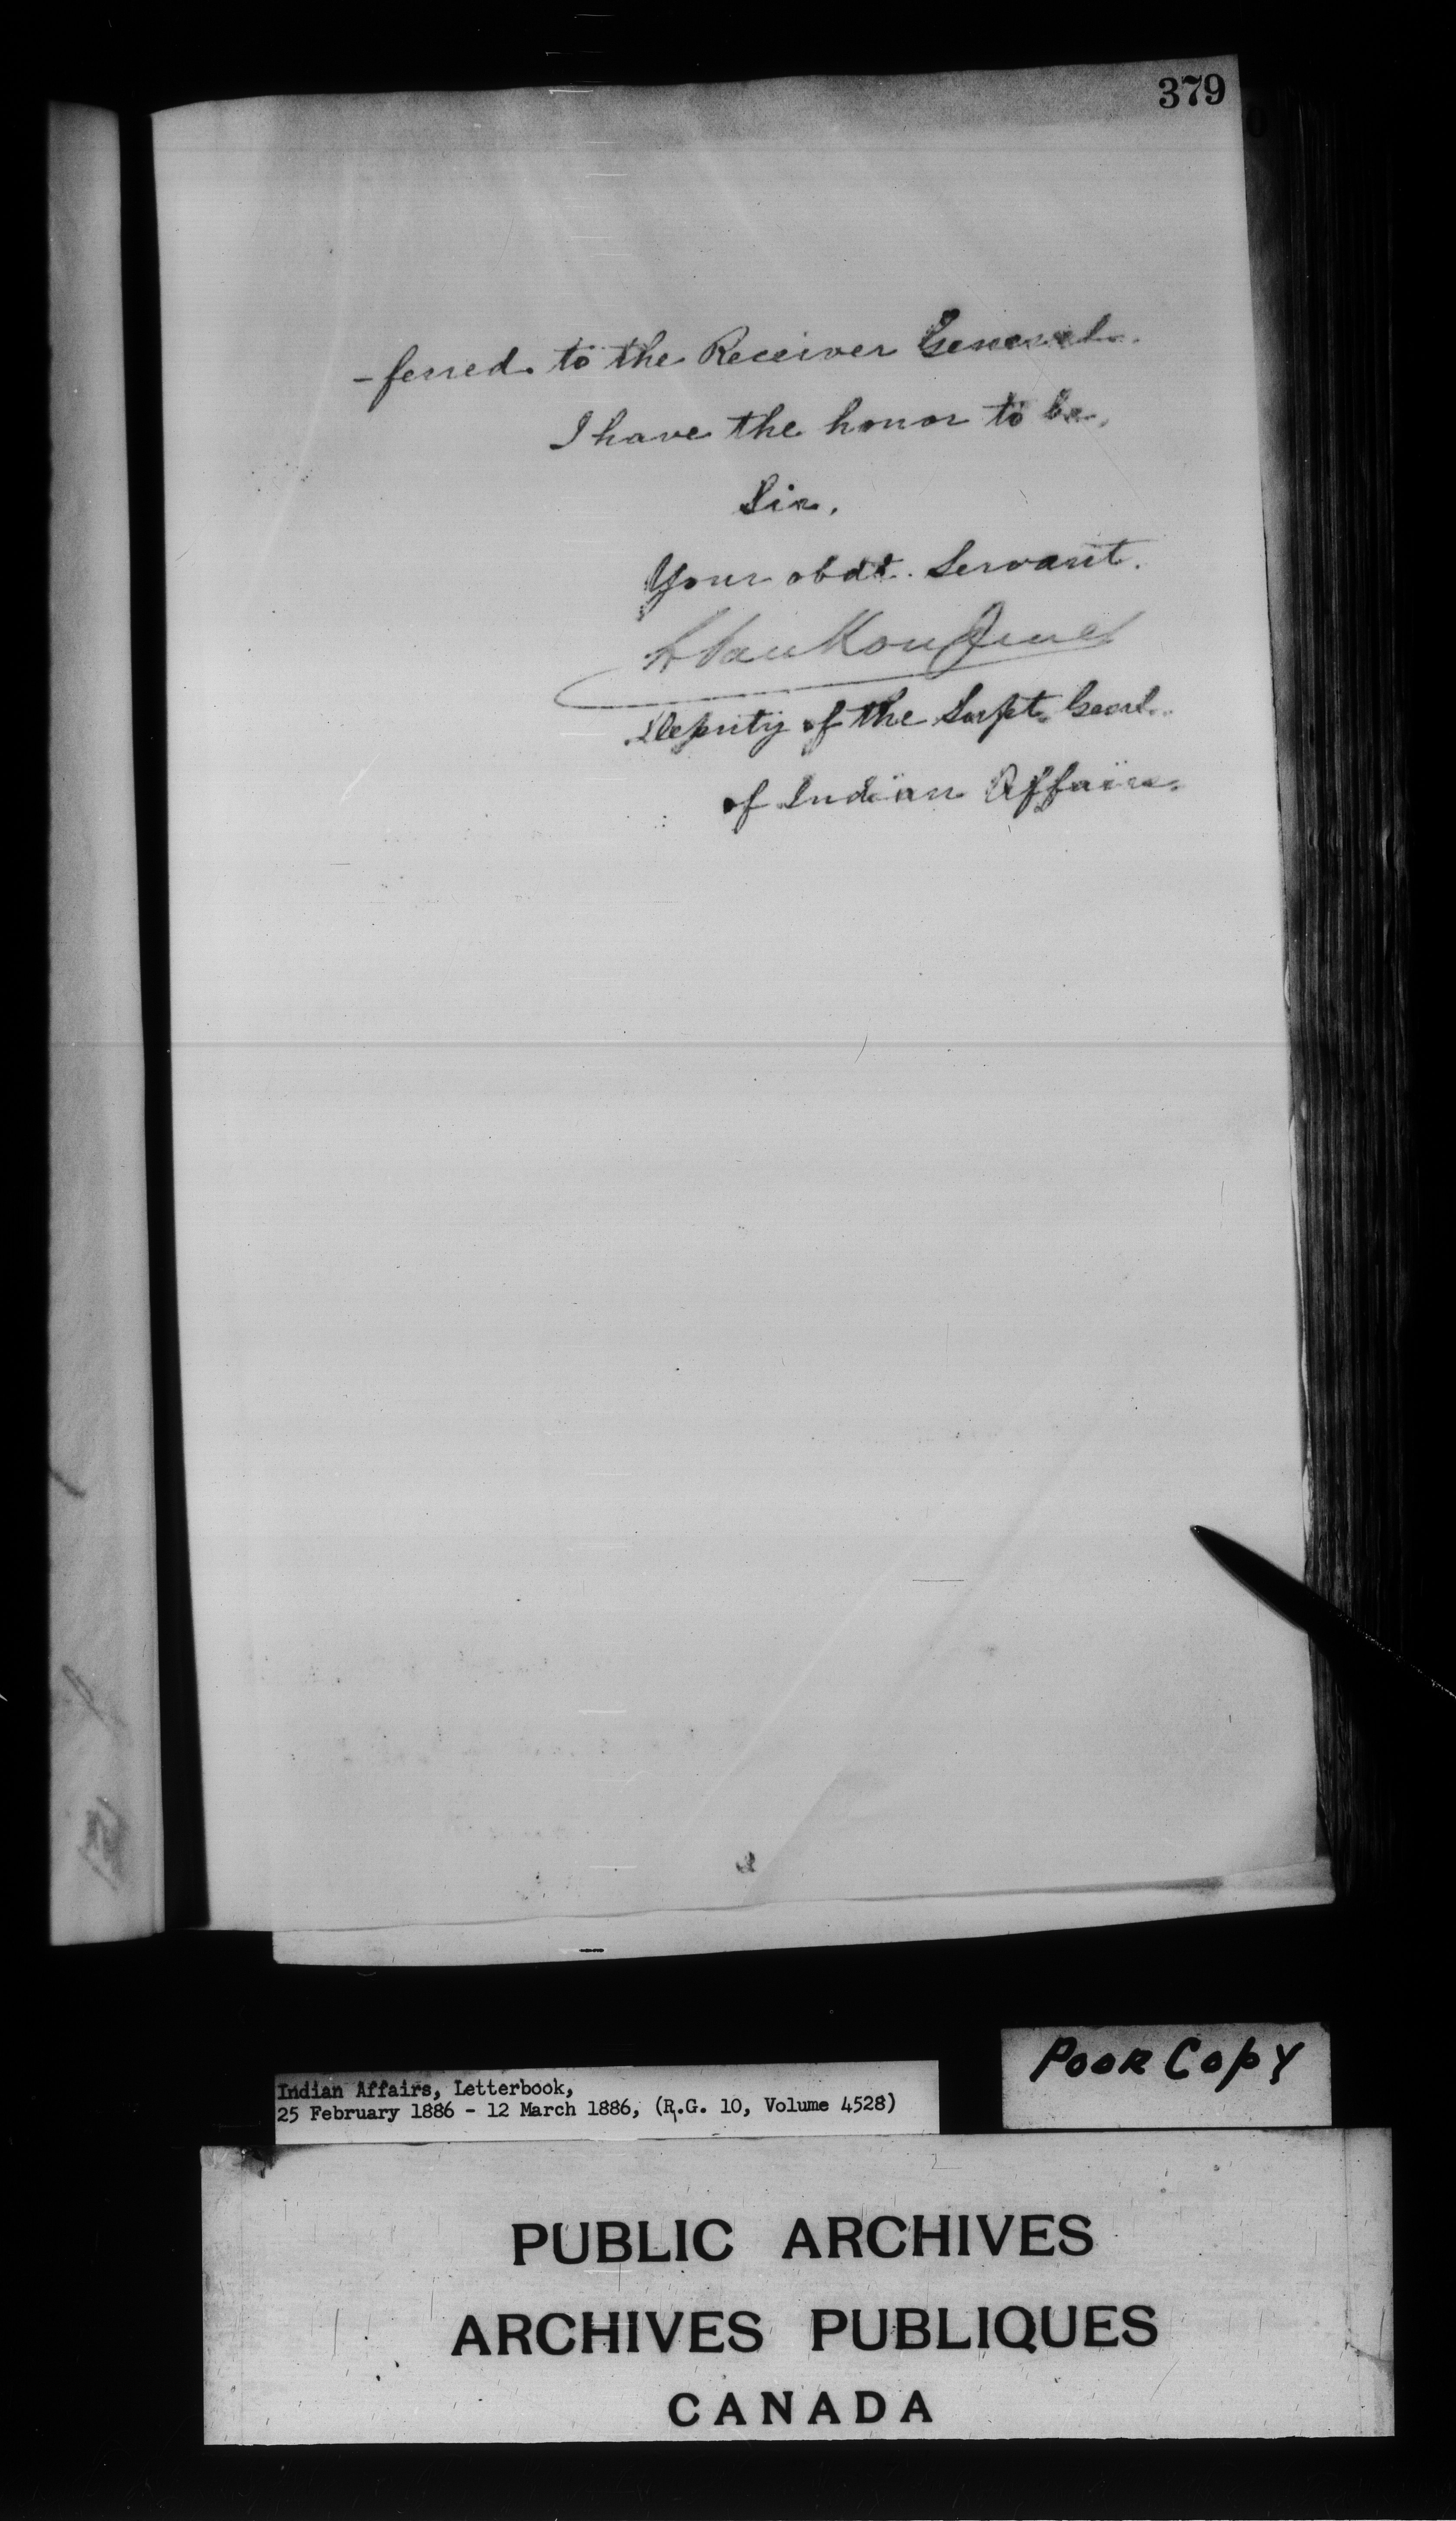 379
-ferred to the Receiver General.
I have the honor to be,
Sir,
Your obdt. Servant.
L VanKoughnet
Deputy of the Supt. Genl.
of Indian Affairs.
Poor Copy
Indian Affairs, Letterbook,
25 February 1886 - 12 March 1886, (R.G. 10, Volume 4528)
PUBLIC ARCHIVES
ARCHIVES PUBLIQUES
CANADA